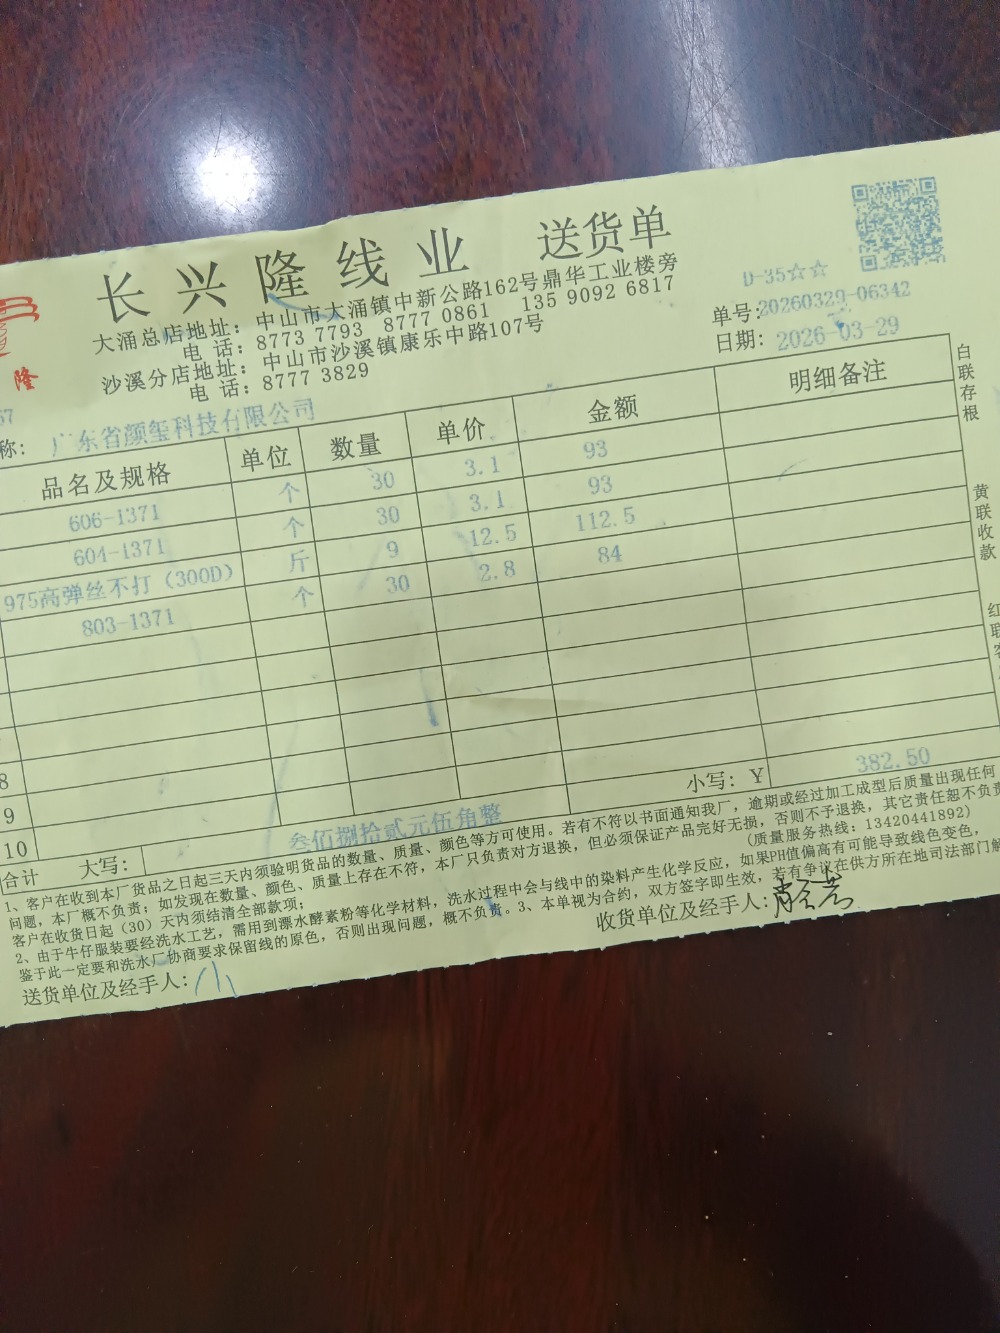 长兴隆线业 送货单
D-35☆☆
大涌总店地址：中山市大涌镇中新公路162号鼎华工业楼旁
电 话：8773 7793 8777 0861 135 9092 6817
沙溪分店地址：中山市沙溪镇康乐中路107号
电 话：8777 3829
单号:20260329-06342
日期: 2026-03-29
隆
67
称: 广东省颜玺科技有限公司
品名及规格 单位 数量 单价 金额 明细备注
606-1371 个 30 3.1 93
604-1371 个 30 3.1 93
975高弹丝不打（300D） 斤 9 12.5 112.5
803-1371 个 30 2.8 84
8
9
10
小写：Y 382.50
合计 大写： 叁佰捌拾贰元伍角整
1、客户在收到本厂货品之日起三天内须验明货品的数量、质量、颜色等方可使用。若有不符以书面通知我厂，逾期或经过加工成型后质量出现任何
问题，本厂概不负责；如发现在数量、颜色、质量上存在不符，本厂只负责对方退换，但必须保证产品完好无损，否则不予退换，其它责任恕不负责
客户在收货日起（30）天内须结清全部款项； （质量服务热线：13420441892）
2、由于牛仔服装要经洗水工艺，需用到漂水酵素粉等化学材料，洗水过程中会与线中的染料产生化学反应，如果PH值偏高有可能导致线色变色，
鉴于此一定要和洗水厂协商要求保留线的原色，否则出现问题，概不负责。3、本单视为合约，双方签字即生效，若有争议在供方所在地司法部门解
送货单位及经手人：
收货单位及经手人：
白联存根
黄联收款
红联客